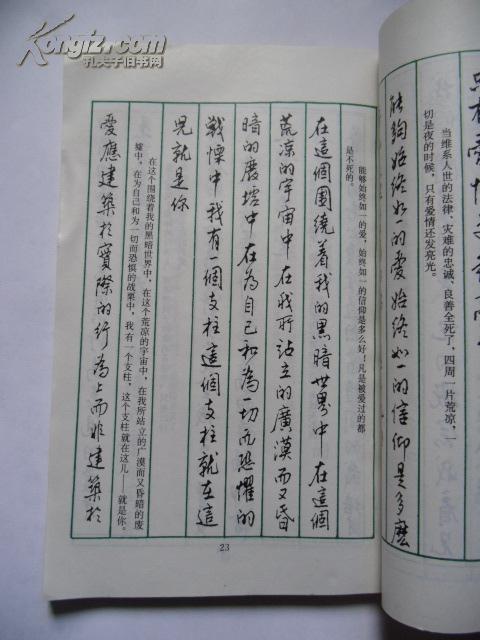 当维系人世的法律、灾难的忠诚、良善全死了，四周一片荒凉，一
切是夜的时候，只有爱情还发亮光。
能夠始終如一的愛始終如一的信仰是多麽
能够始终如一的爱，始终如一的信仰是多么好！凡是被爱过的都
是不死的。
在這個圍繞着我的黑暗世界中在這個
荒凉的宇宙中在我所站立的廣漠而又昏
暗的廢墟中在為自己和為一切而恐懼的
戰慄中我有一個支柱這個支柱就在這
兒就是你
在这个围绕着我的黑暗世界中，在这个荒凉的宇宙中，在我所站立的广漠而又昏暗的废
墟中，在为自己和为一切而恐惧的战栗中，我有一个支柱，这个支柱就在这儿——就是你。
愛應建築於實際的行為上而非建築於
23
Kongfz.com
孔夫子旧书网